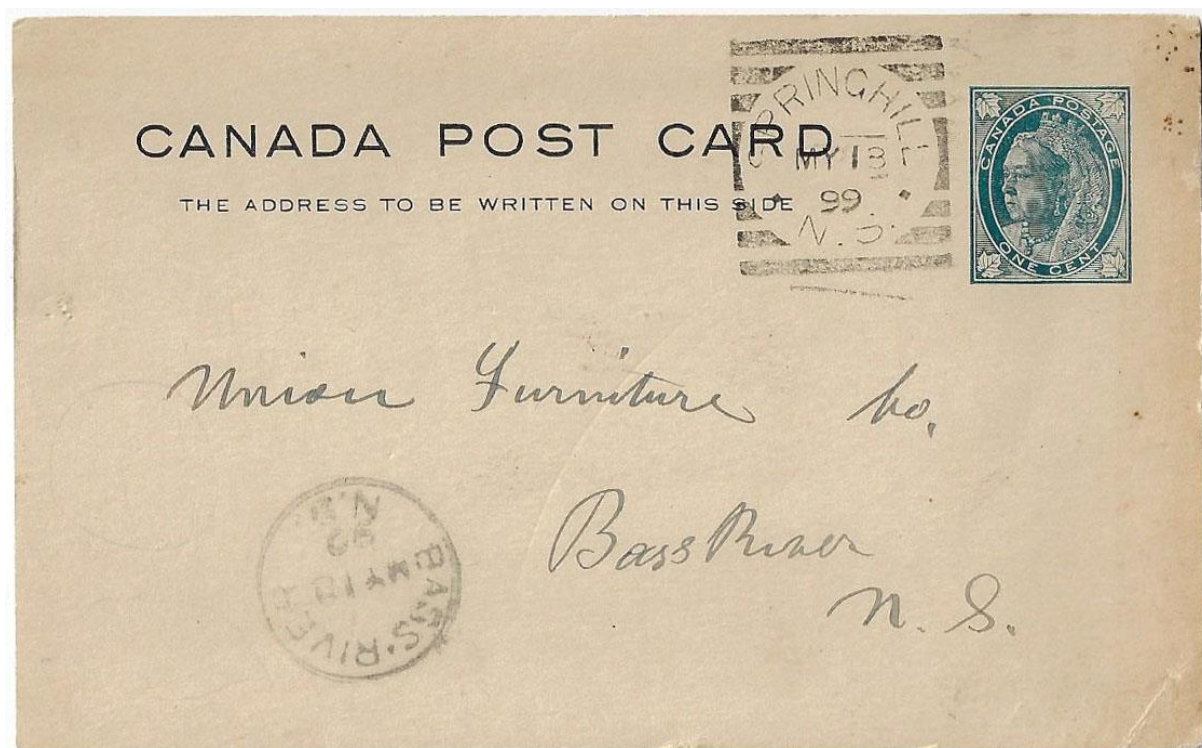 CANADA POST CARD
THE ADDRESS TO BE WRITTEN ON THIS SIDE
SPRINGHILL
MY 13
99
N.S.
CANADA POSTAGE
ONE CENT
Union Furniture Co.
Bass River
N. S.
BASS RIVER
MY 13
99
N.S.